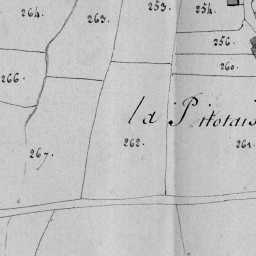 264. 263. 253. 254.
256.
266. 260.
la Pitotais
267. 262. 261.